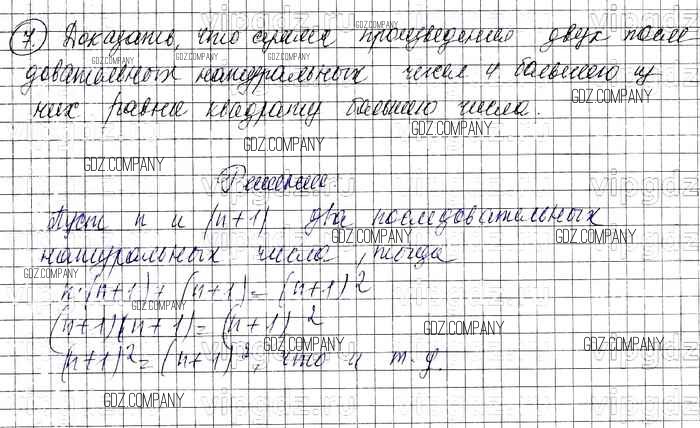 7. Доказать, что сумма произведения двух после
довательных натуральных чисел и большего из
них равна квадрату большего числа.
GDZ.COMPANY
Решение
Пусть n и (n+1) два последовательных
натуральных числа, тогда
n·(n+1) + (n+1) = (n+1)²
(n+1)(n+1) = (n+1)²
(n+1)² = (n+1)², что и т.д.
GDZ.COMPANY
vipgdz.ru